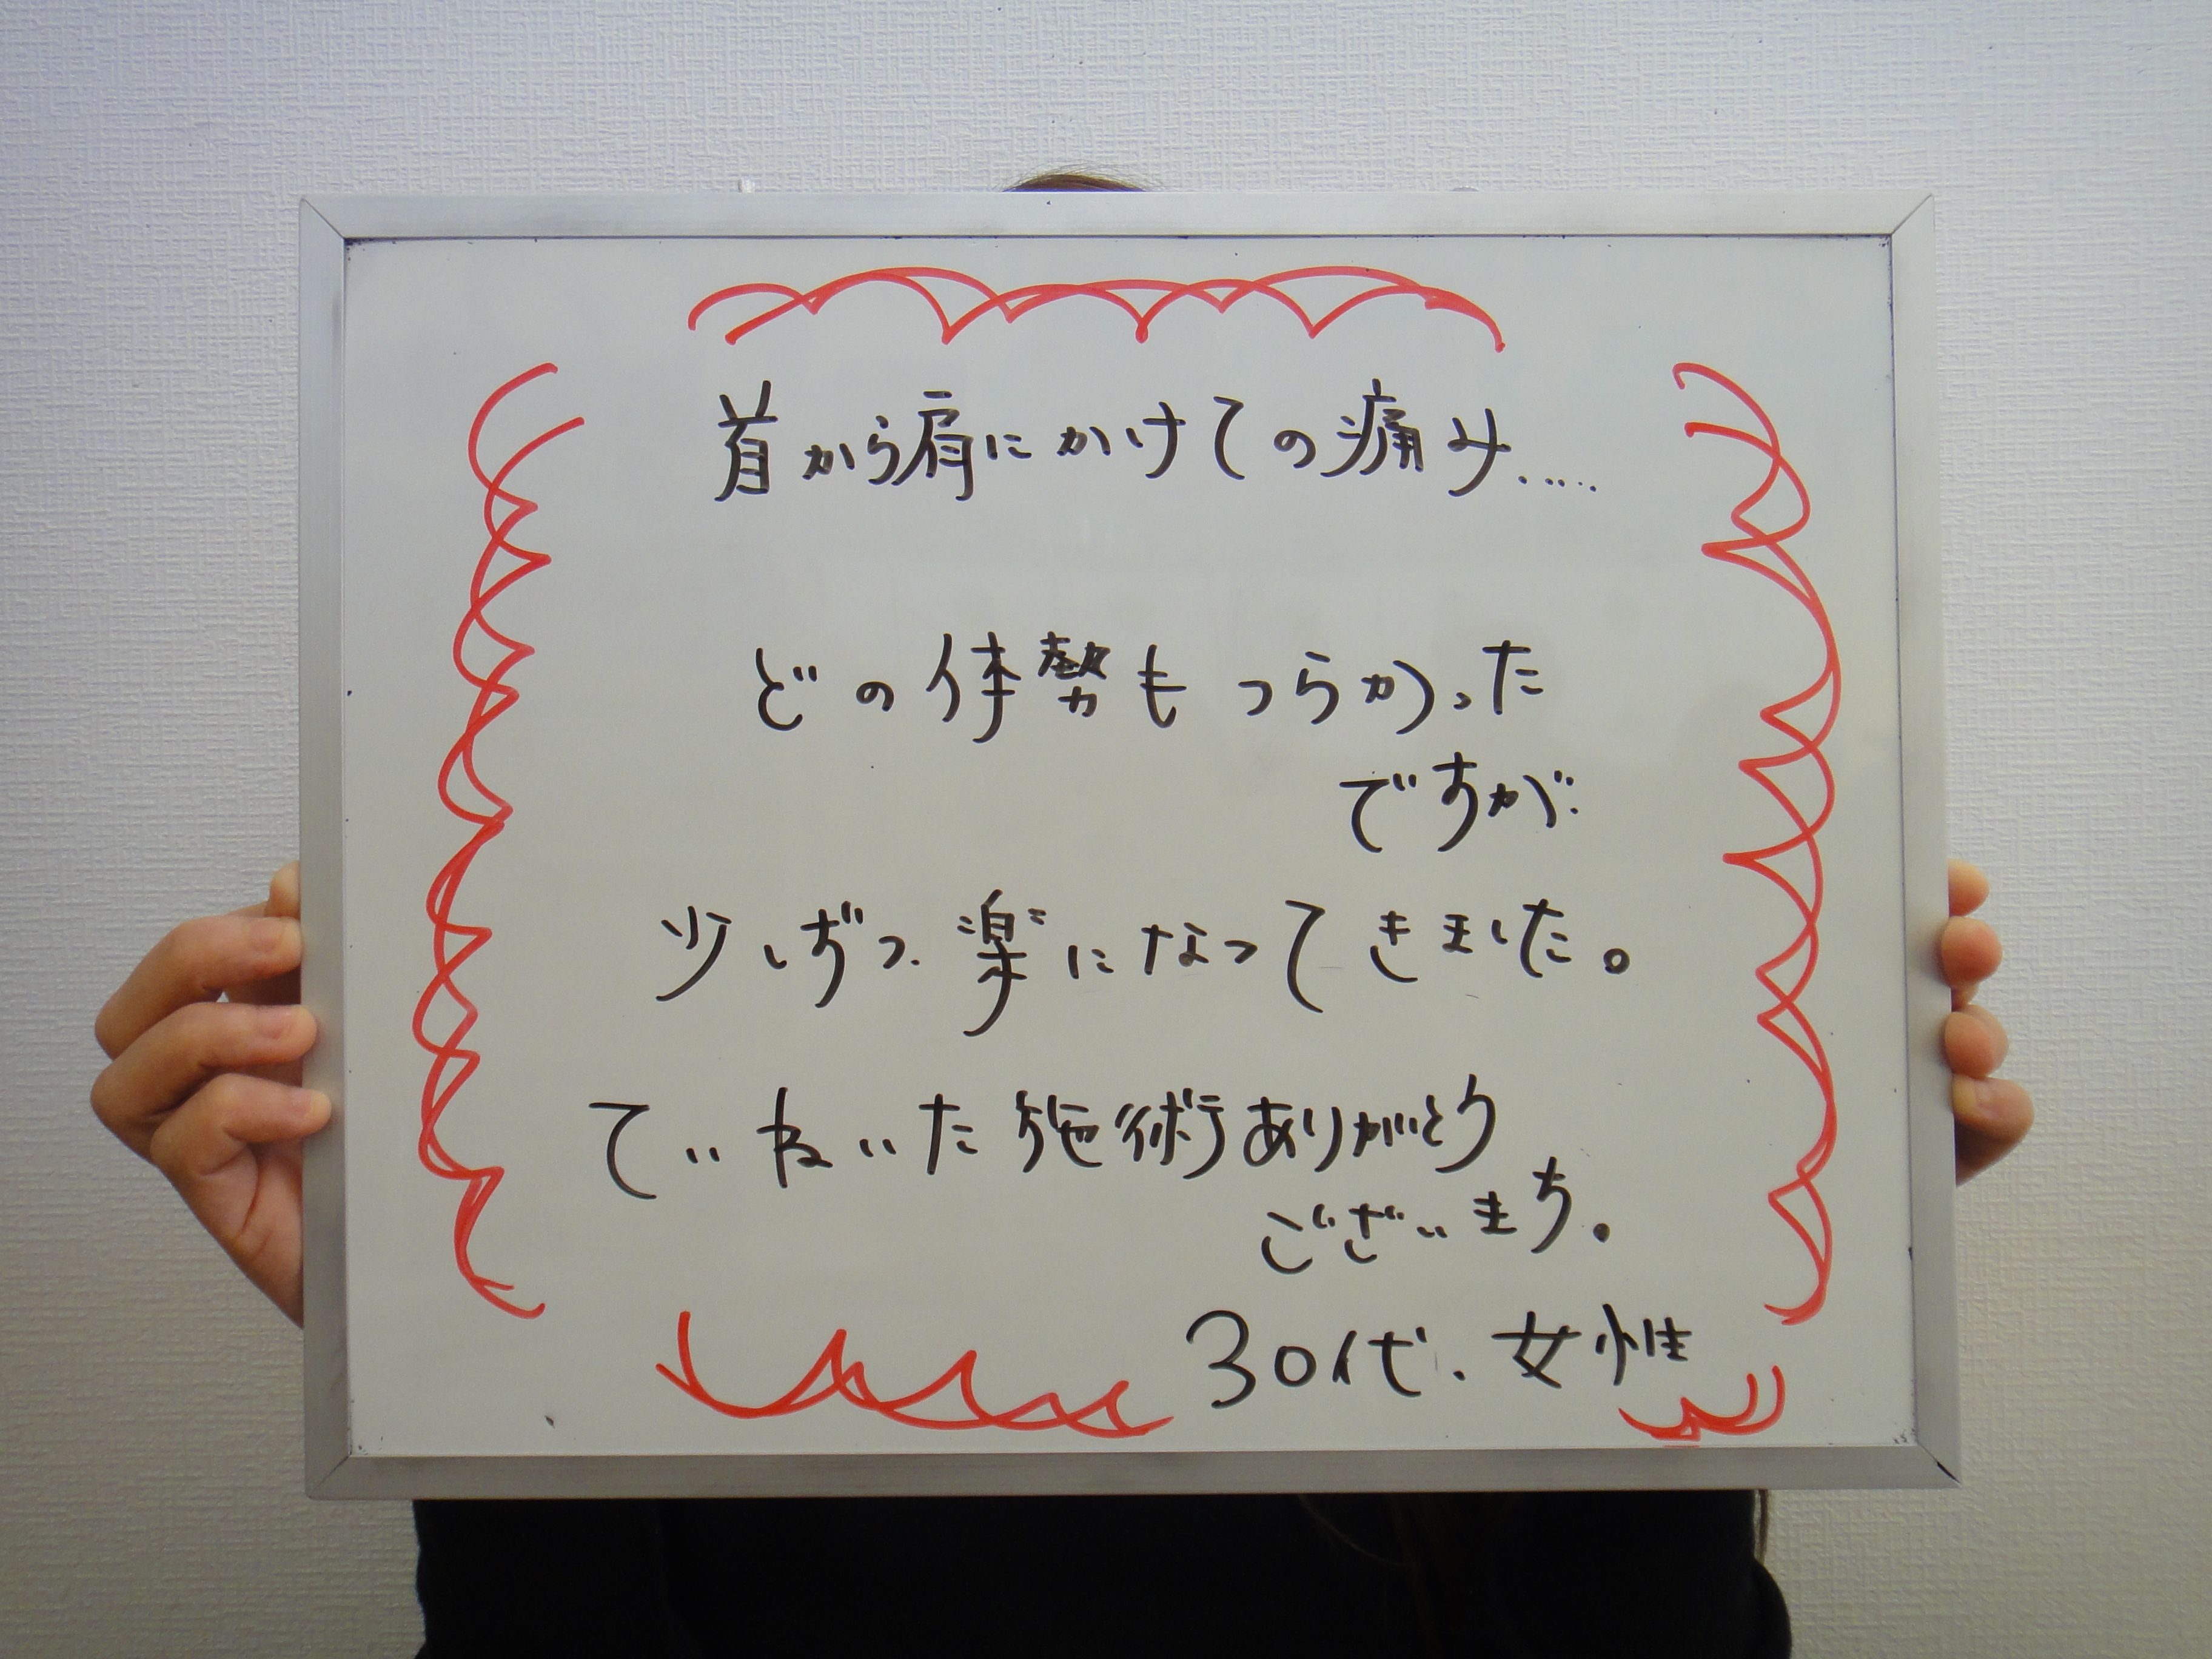 首から肩にかけての痛み.....
どの体勢もつらかった
ですが.
少しずつ楽になってきました。
ていねいた施術ありがとう
ございます.
30代.女性